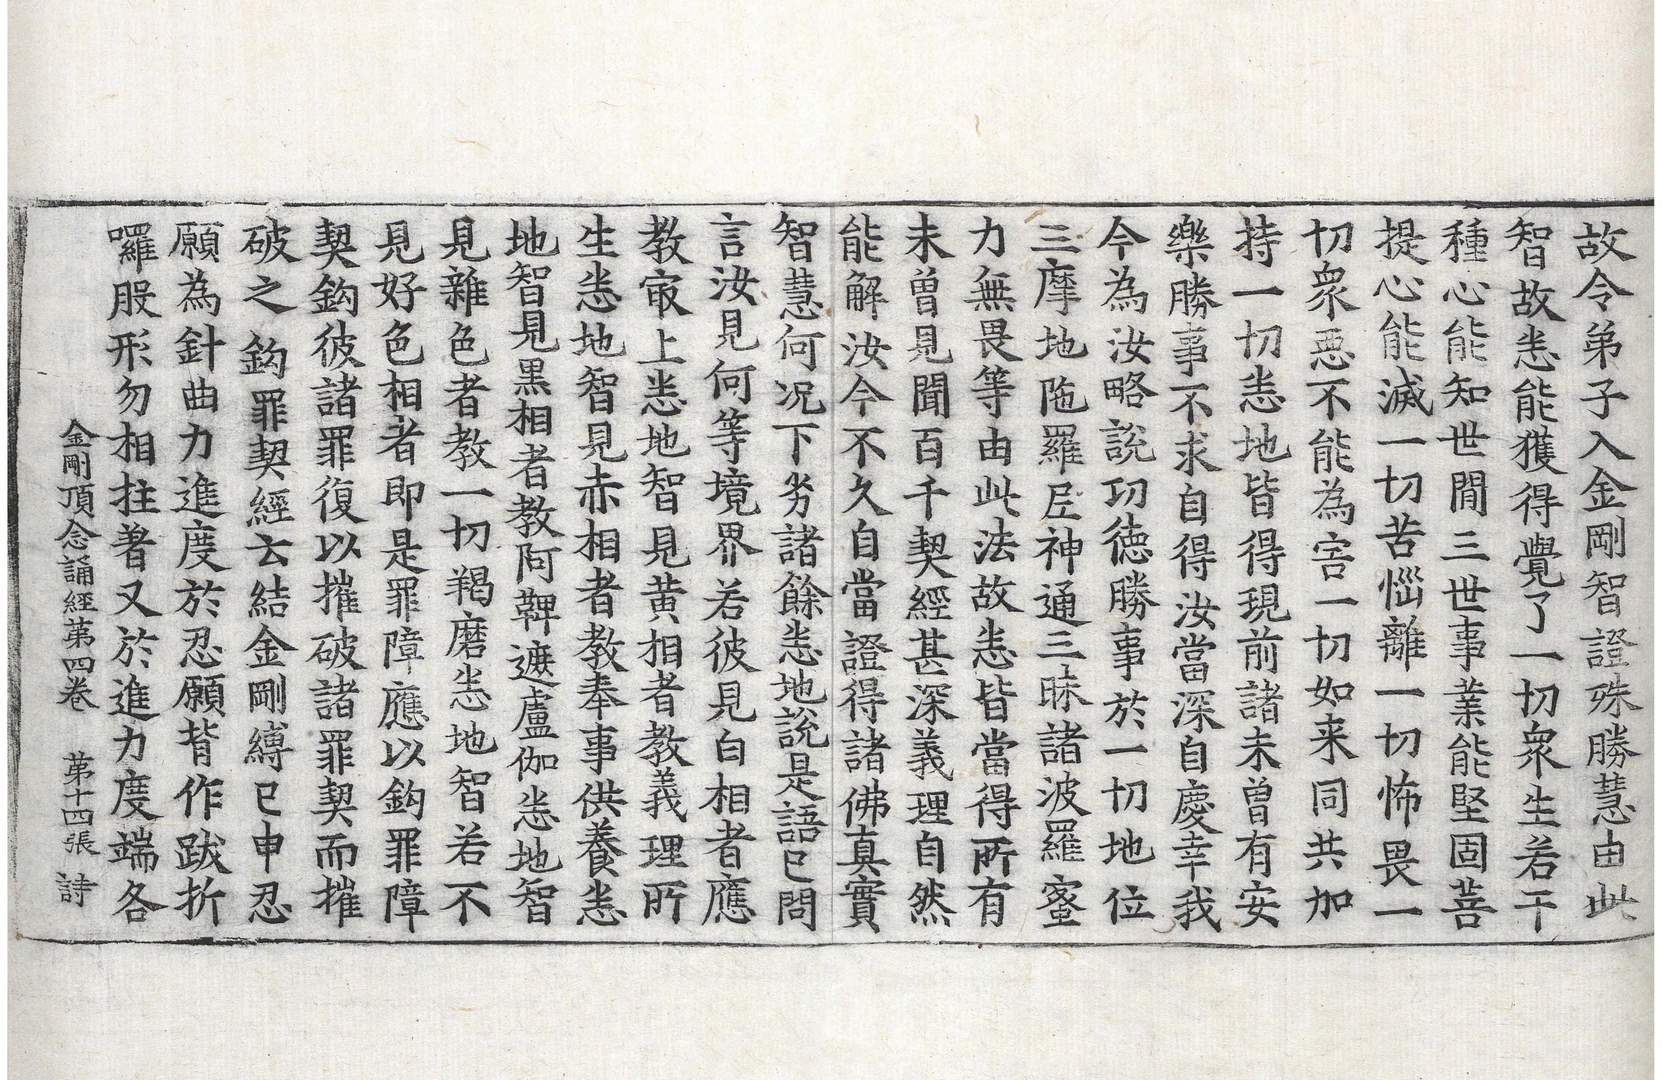 故令弟子入金剛智證殊勝慧由此
智故悉能獲得覺了一切衆生若干
種心能知世間三世事業能堅固菩
提心能滅一切苦惱離一切怖畏一
切衆惡不能為害一切如来同共加
持一切悉地皆得現前諸未曽有安
樂勝事不求自得汝當深自慶幸我
今為汝略說功徳勝事於一切地位
三摩地陁羅尼神通三昧諸波羅蜜
力無畏等由此法故悉皆當得所有
未曽見聞百千契經甚深義理自然
能解汝今不久自當證得諸佛真實
智慧何况下劣諸餘悉地說是語已問
言汝見何等境界若彼見白相者應
教㝡上悉地智見黄相者教義理所
生悉地智見赤相者教奉事供養悉
地智見黒相者教阿鞞遮盧伽悉地智
見雜色者教一切羯磨悉地智若不
見好色相者即是罪障應以鈎罪障
契鈎彼諸罪復以摧破諸罪契而摧
破之 鈎罪契經云結金剛縛已申忍
願為針曲力進度於忍願背作跋折
囉股形勿相拄著又於進力度端各
金剛頂念誦經第四卷 第十四張 詩